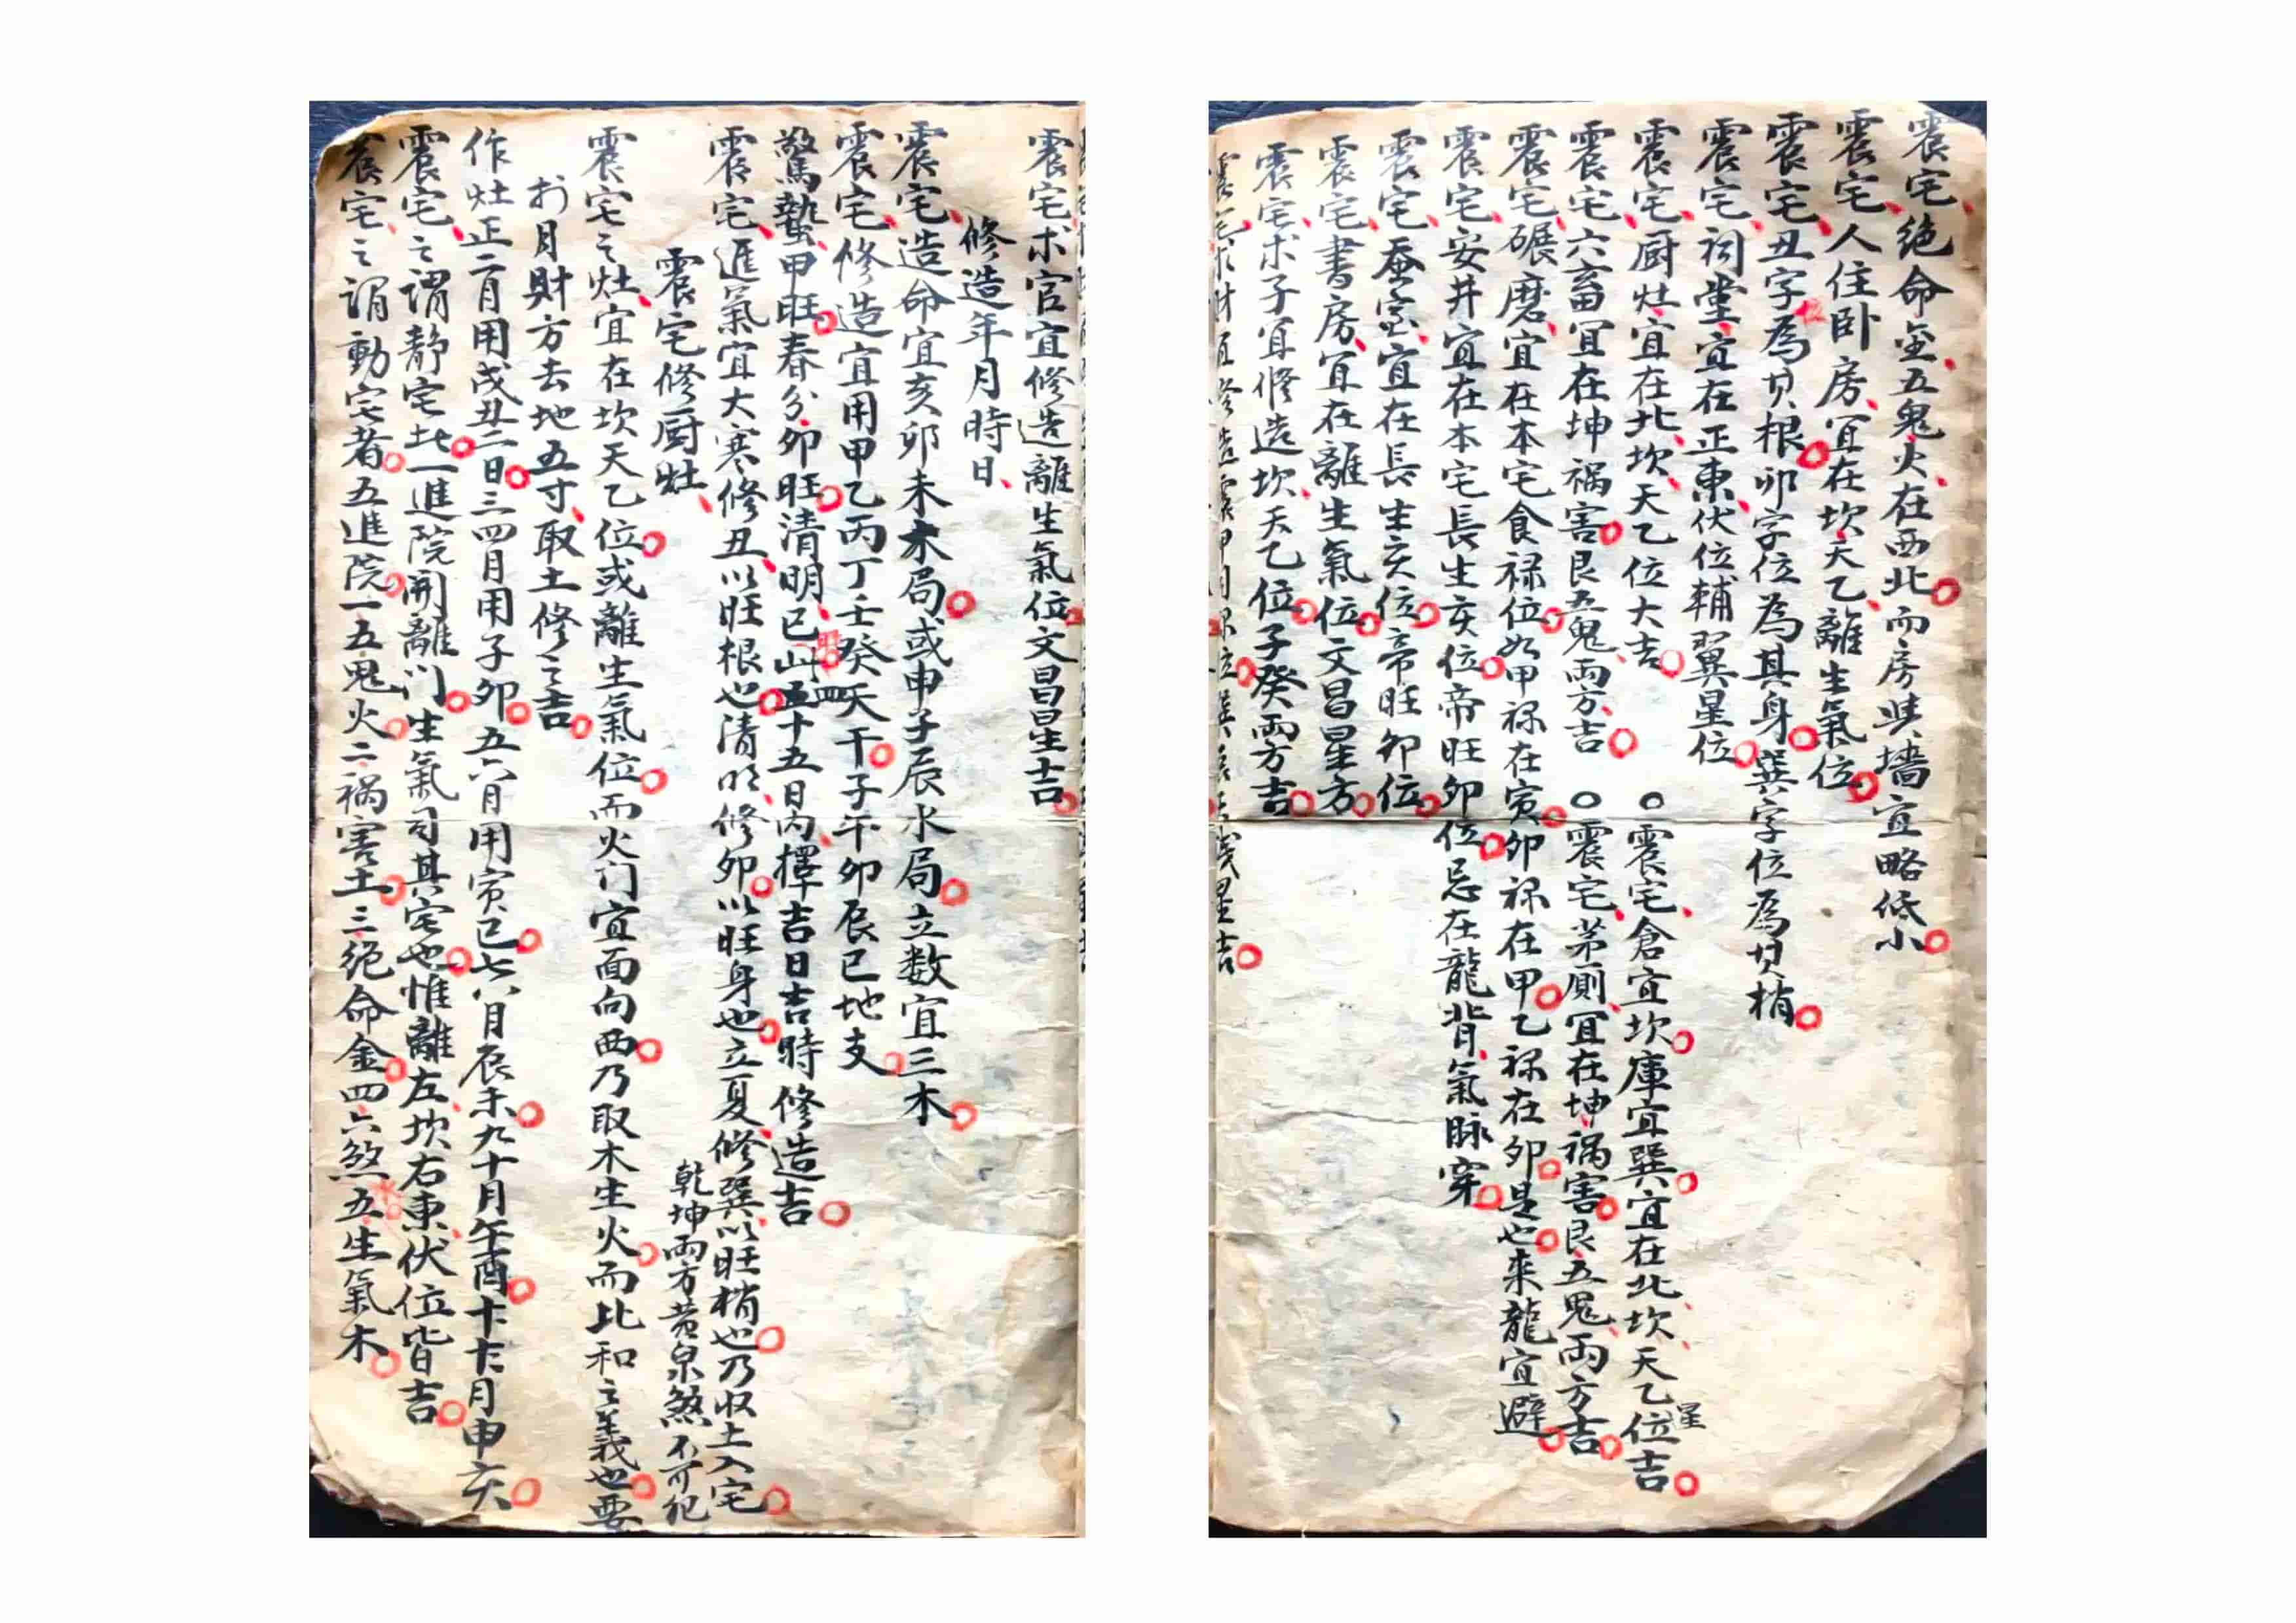 震宅絶命金五鬼火在西北而房與墻宜略低小
震宅人住卧房宜在坎天乙離生氣位
震宅丑字為根卯字位為其身巽字位為梢
震宅祠堂宜在正東伏位輔翼星位
震宅厨灶宜在北坎天乙位大吉
○震宅倉宜坎庫宜巽宜在北坎天乙星位吉
震宅六畜宜在坤禍害艮五鬼兩方吉
○震宅茅厠宜在坤禍害艮五鬼兩方吉
震宅碾磨宜在本宅食禄位如甲禄在寅卯禄在甲乙禄在卯是也来龍宜避
震宅安井宜在本宅長生亥位帝旺卯位忌在龍背氣脉穿
震宅蚕室宜在長生亥位帝旺卯位
震宅書房宜在離生氣位文昌星方
震宅求子宜修造坎天乙位子癸兩方吉
震宅求官宜修造離生氣位文昌星吉
修造年月時日
震宅造命宜亥卯未木局或申子辰水局立数宜三木
震宅修造宜用甲乙丙丁壬癸天干子午卯辰巳地支
驚蟄甲旺春分卯旺清明巳山四十五日内擇吉日吉時修造吉
震宅進氣宜大寒修丑以旺根也清明修卯以旺身也立夏修巽以旺梢也乃収土入宅
震宅修厨灶
乾坤兩方黄泉煞不可犯
震宅之灶宜在坎天乙位或離生氣位而火门宜面向西乃取木生火而比和之義也要
於月財方去地五寸取土修之吉
作灶正二月用戌丑二日三四月用子卯五六月用寅巳七八月辰未九十月午酉十一十二月申亥
震宅之謂靜宅此一進院開離门生氣司其宅也惟離左坎右東伏位皆吉
震宅之謂動宅者五進院一五鬼火二禍害土三绝命金四六煞水五生氣木